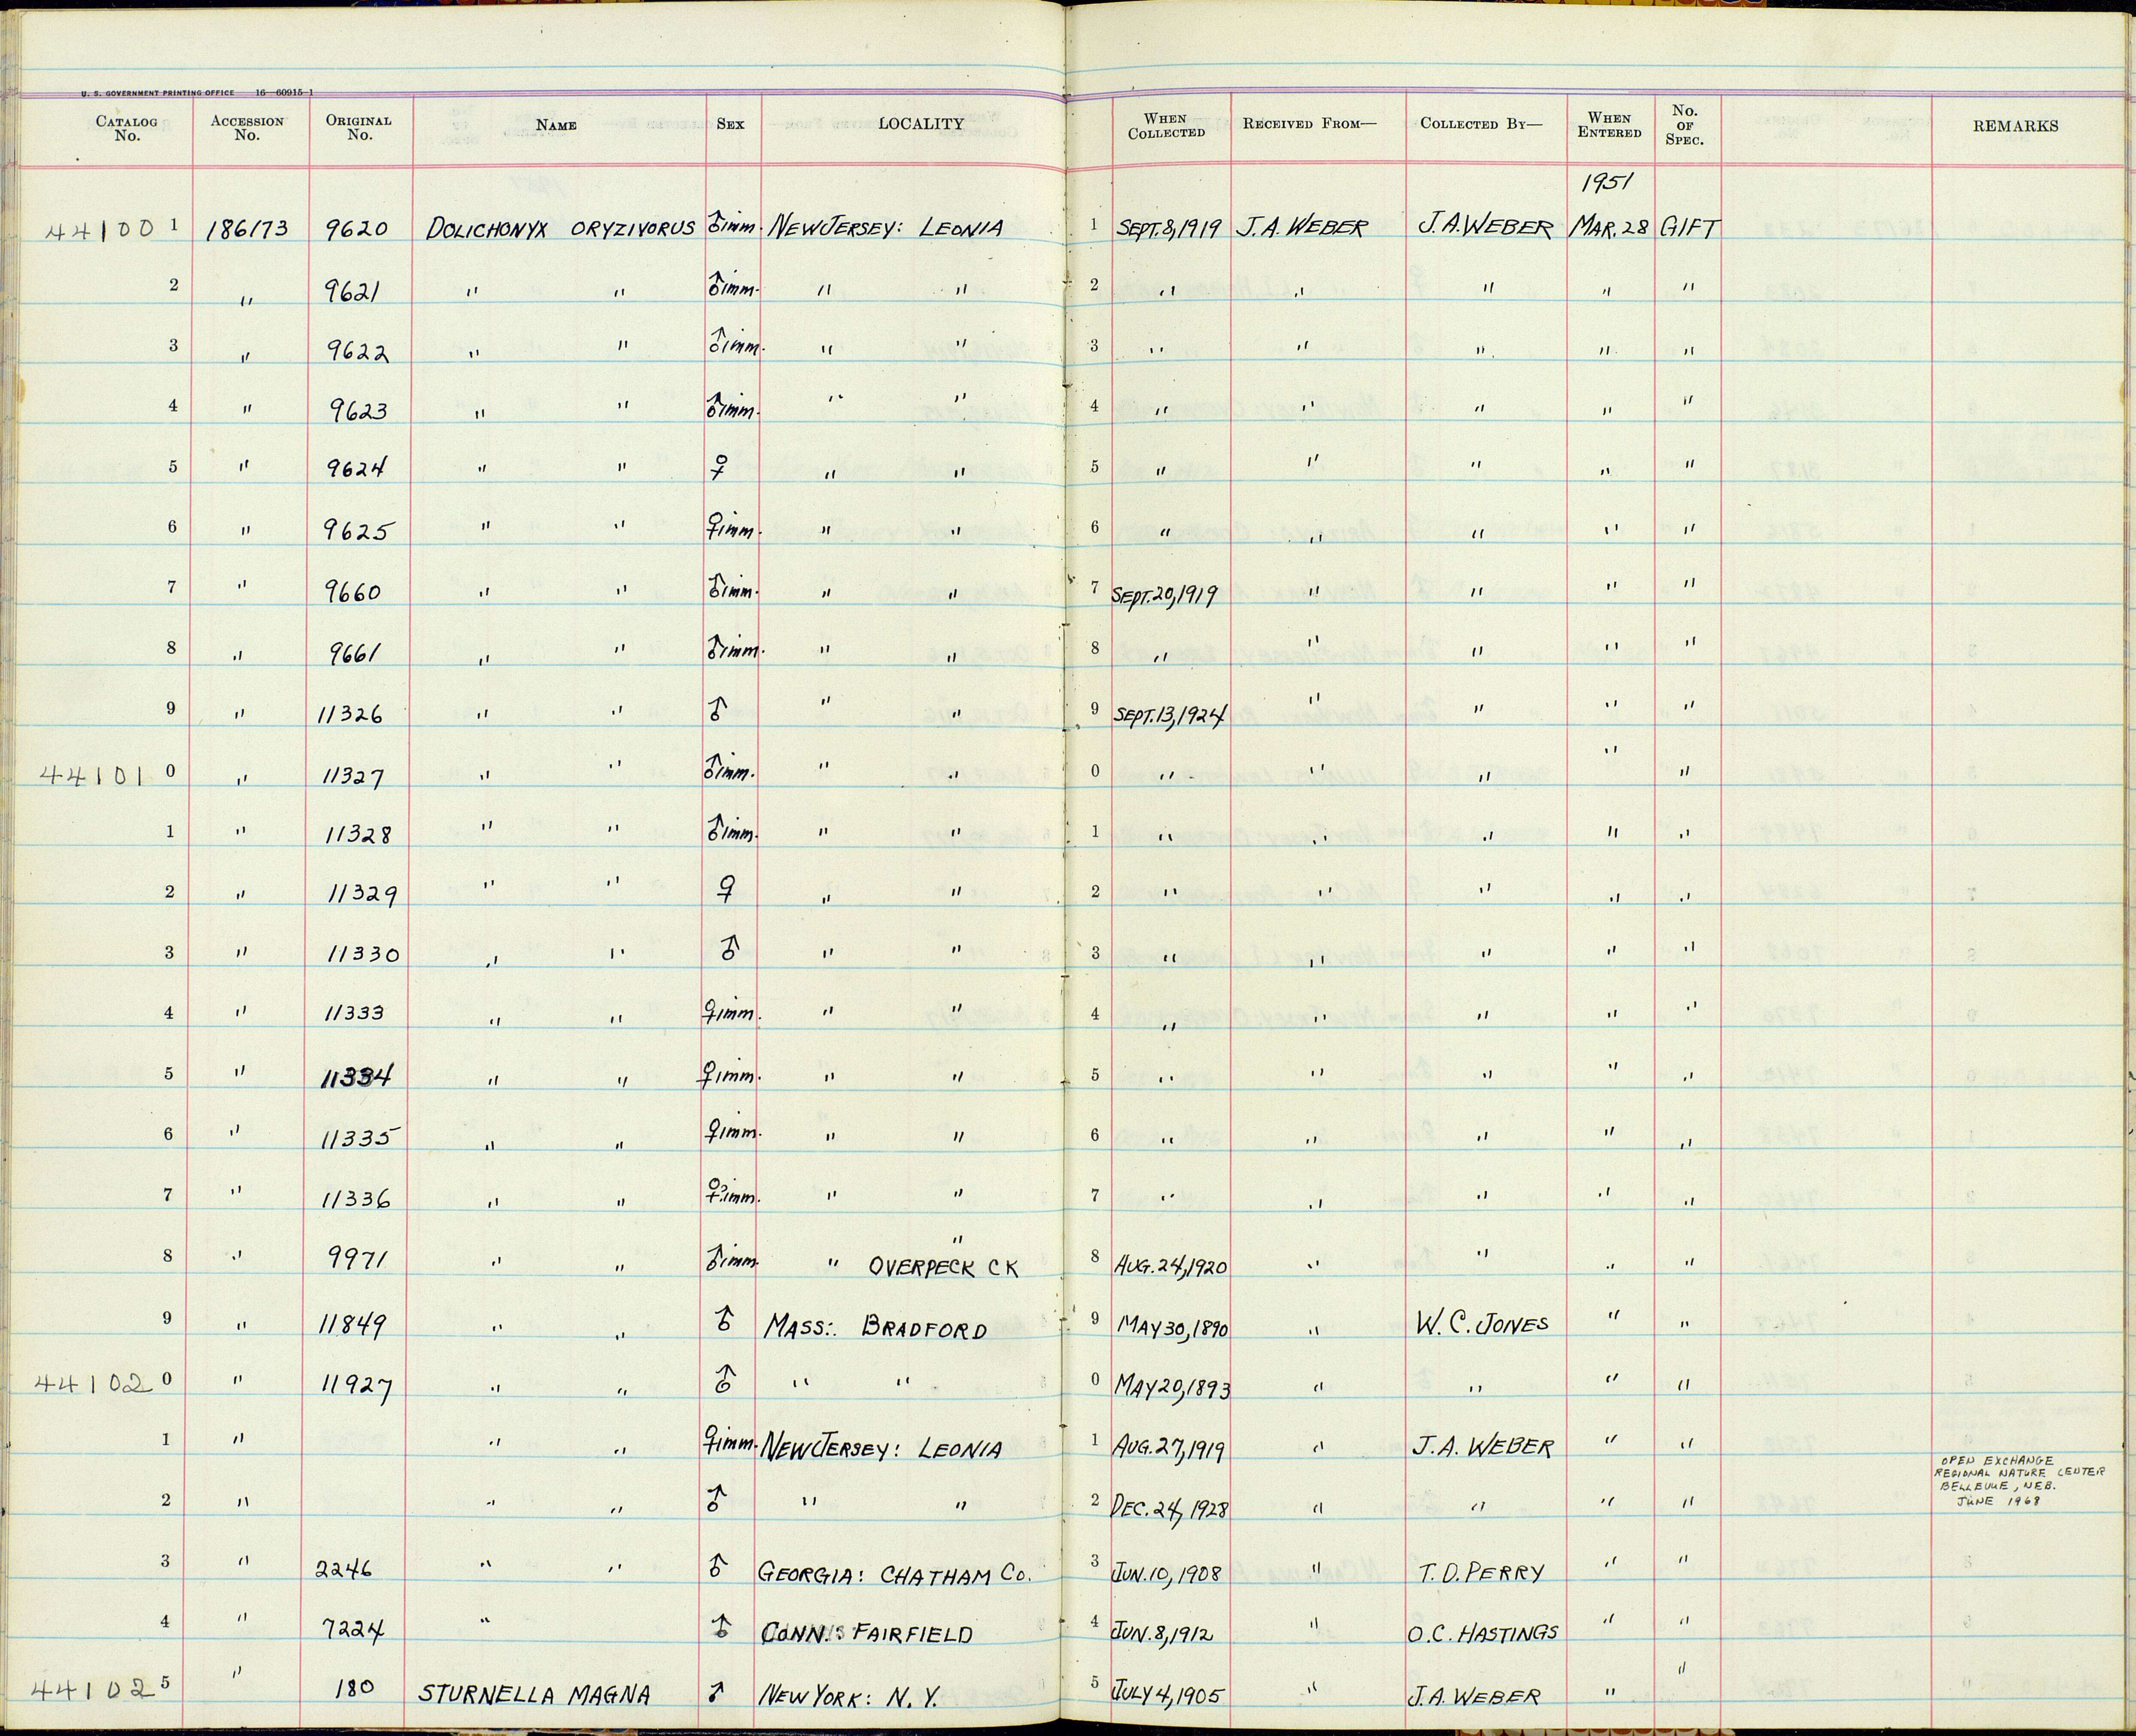 U. S. GOVERNMENT PRINTING OFFICE 16—60915-1
CATALOG No. ACCESSION No. ORIGINAL No. NAME SEX LOCALITY WHEN COLLECTED RECEIVED FROM— COLLECTED BY— WHEN ENTERED No. OF SPEC. REMARKS
1951
44100 1 186173 9620 DOLICHONYX ORYZIVORUS ♂imm. NEW JERSEY: LEONIA 1 SEPT. 8, 1919 J. A. WEBER J. A. WEBER MAR. 28 GIFT
2 " 9621 " " ♂imm. " " 2 " " " " "
3 " 9622 " " ♂imm. " " 3 " " " " "
4 " 9623 " " ♂imm. " " 4 " " " " "
5 " 9624 " " ♀ " " 5 " " " " "
6 " 9625 " " ♀imm. " " 6 " " " " "
7 " 9660 " " ♂imm. " " 7 SEPT. 20, 1919 " " " "
8 " 9661 " " ♂imm. " " 8 " " " " "
9 " 11326 " " ♂ " " 9 SEPT. 13, 1924 " " " "
44101 0 " 11327 " " ♂imm. " " 0 " " " " "
1 " 11328 " " ♂imm. " " 1 " " " " "
2 " 11329 " " ♀ " " 2 " " " " "
3 " 11330 " " ♂ " " 3 " " " " "
4 " 11333 " " ♀imm. " " 4 " " " " "
5 " 11334 " " ♀imm. " " 5 " " " " "
6 " 11335 " " ♀imm. " " 6 " " " " "
7 " 11336 " " ♀?imm. " " 7 " " " " "
8 " 9971 " " ♂imm. " " OVERPECK CK 8 AUG. 24, 1920 " " " "
9 " 11849 " " ♂ MASS.: BRADFORD 9 MAY 30, 1890 " W. C. JONES " "
44102 0 " 11927 " " ♂ " " 0 MAY 20, 1893 " " " "
1 " " " ♀imm. NEW JERSEY: LEONIA 1 AUG. 27, 1919 " J. A. WEBER " "
2 " " " ♂ " " 2 DEC. 24, 1928 " " " " OPEN EXCHANGE
REGIONAL NATURE CENTER
BELLEVUE, NEB.
JUNE 1968
3 " 2246 " " ♂ GEORGIA: CHATHAM Co. 3 JUN. 10, 1908 " T. D. PERRY " "
4 " 7224 " ♂ CONN.: FAIRFIELD 4 JUN. 8, 1912 " O. C. HASTINGS " "
44102 5 " 180 STURNELLA MAGNA ♂ NEW YORK: N. Y. 5 JULY 4, 1905 " J. A. WEBER " "